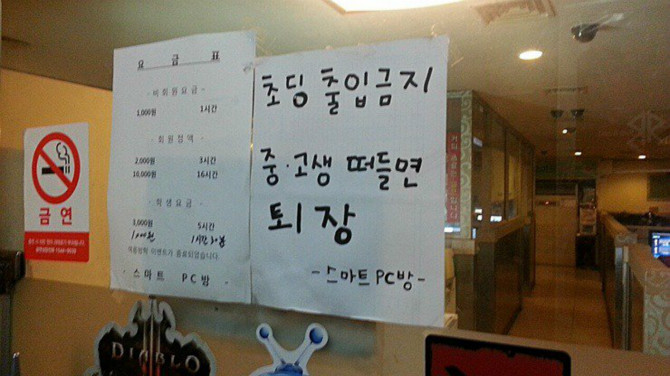 요 금 표
- 비회원요금 -
1,000원 1시간
- 회원정액 -
2,000원 3시간
10,000원 16시간
- 학생요금 -
5시간
1시간30분
이벤트가 종료되었습니다
- 스마트 PC방 -
초딩 출입금지
중·고생 떠들면
퇴장
-스마트PC방-
금연
DIABLO